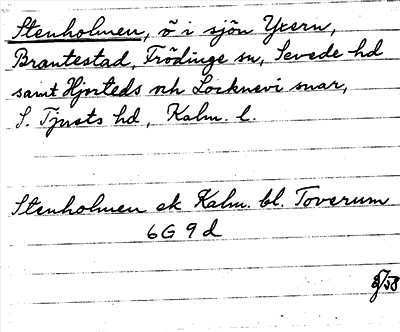 Stenholmen, ö i sjön Yxern,
Brantestad, Frödinge sn, Sevede hd
samt Hjorteds och Locknevi snar,
S. Tjusts hd, Kalm. l.
Stenholmen ek Kalm. bl. Toverum
6G 9d